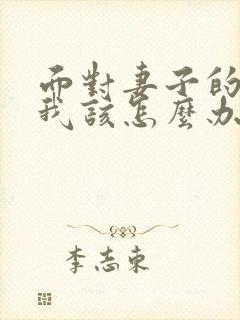 而對妻子的
我該怎麼办
李志東